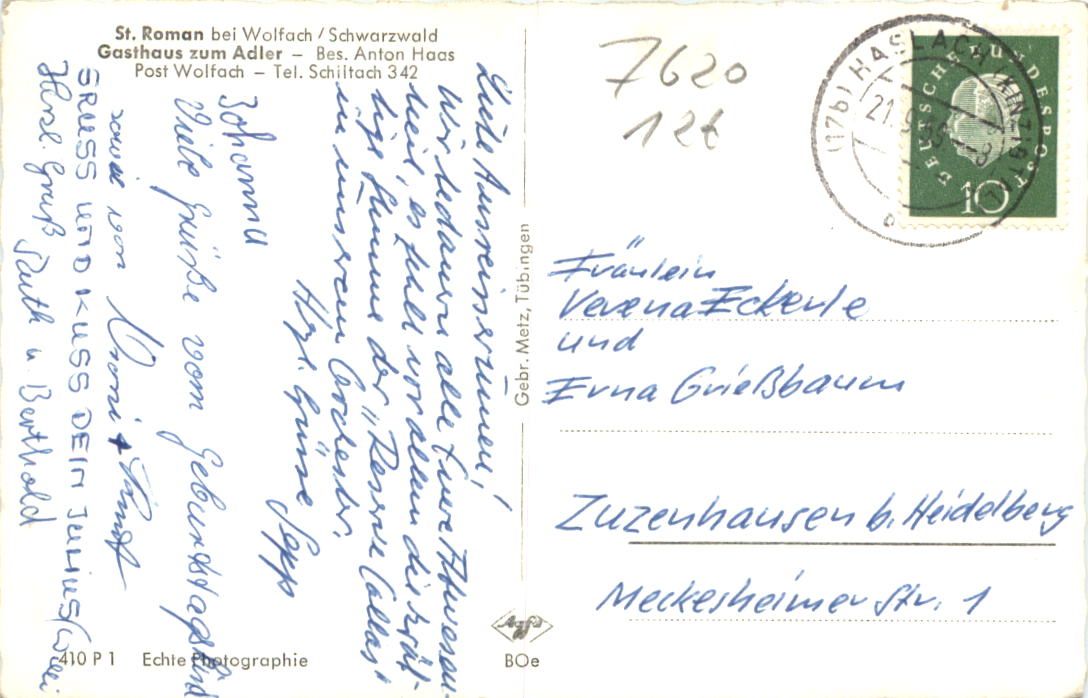 St. Roman bei Wolfach / Schwarzwald
Gasthaus zum Adler – Bes. Anton Haas
Post Wolfach – Tel. Schiltach 342
Gute Ausreisserinnen!
Wir bedauern alle Eure Abwesen-
heit, es fehlt vor allem die kräf-
tige Stimme der "Reserve Callas"
in unserem Orchester.
Hzl. Grüsse Sepp
Johanna
Viele Grüße vom Geburtstagskind
sowie von
GRUSS UND KUSS DEIN JULIUS (Willi
Herzl. Gruß Ruth u. Berthold
410 P 1 Echte Photographie
Gebr. Metz, Tübingen
Agfa
BOe
7620
12t
(17b) HASLACH (KINZIGTAL)
21.9.
DEUTSCHE BUNDESPOST
10
Fräulein
Verena Eckerle
und
Erna Grießbaum
Zuzenhausen b. Heidelberg
Meckesheimer Str. 1